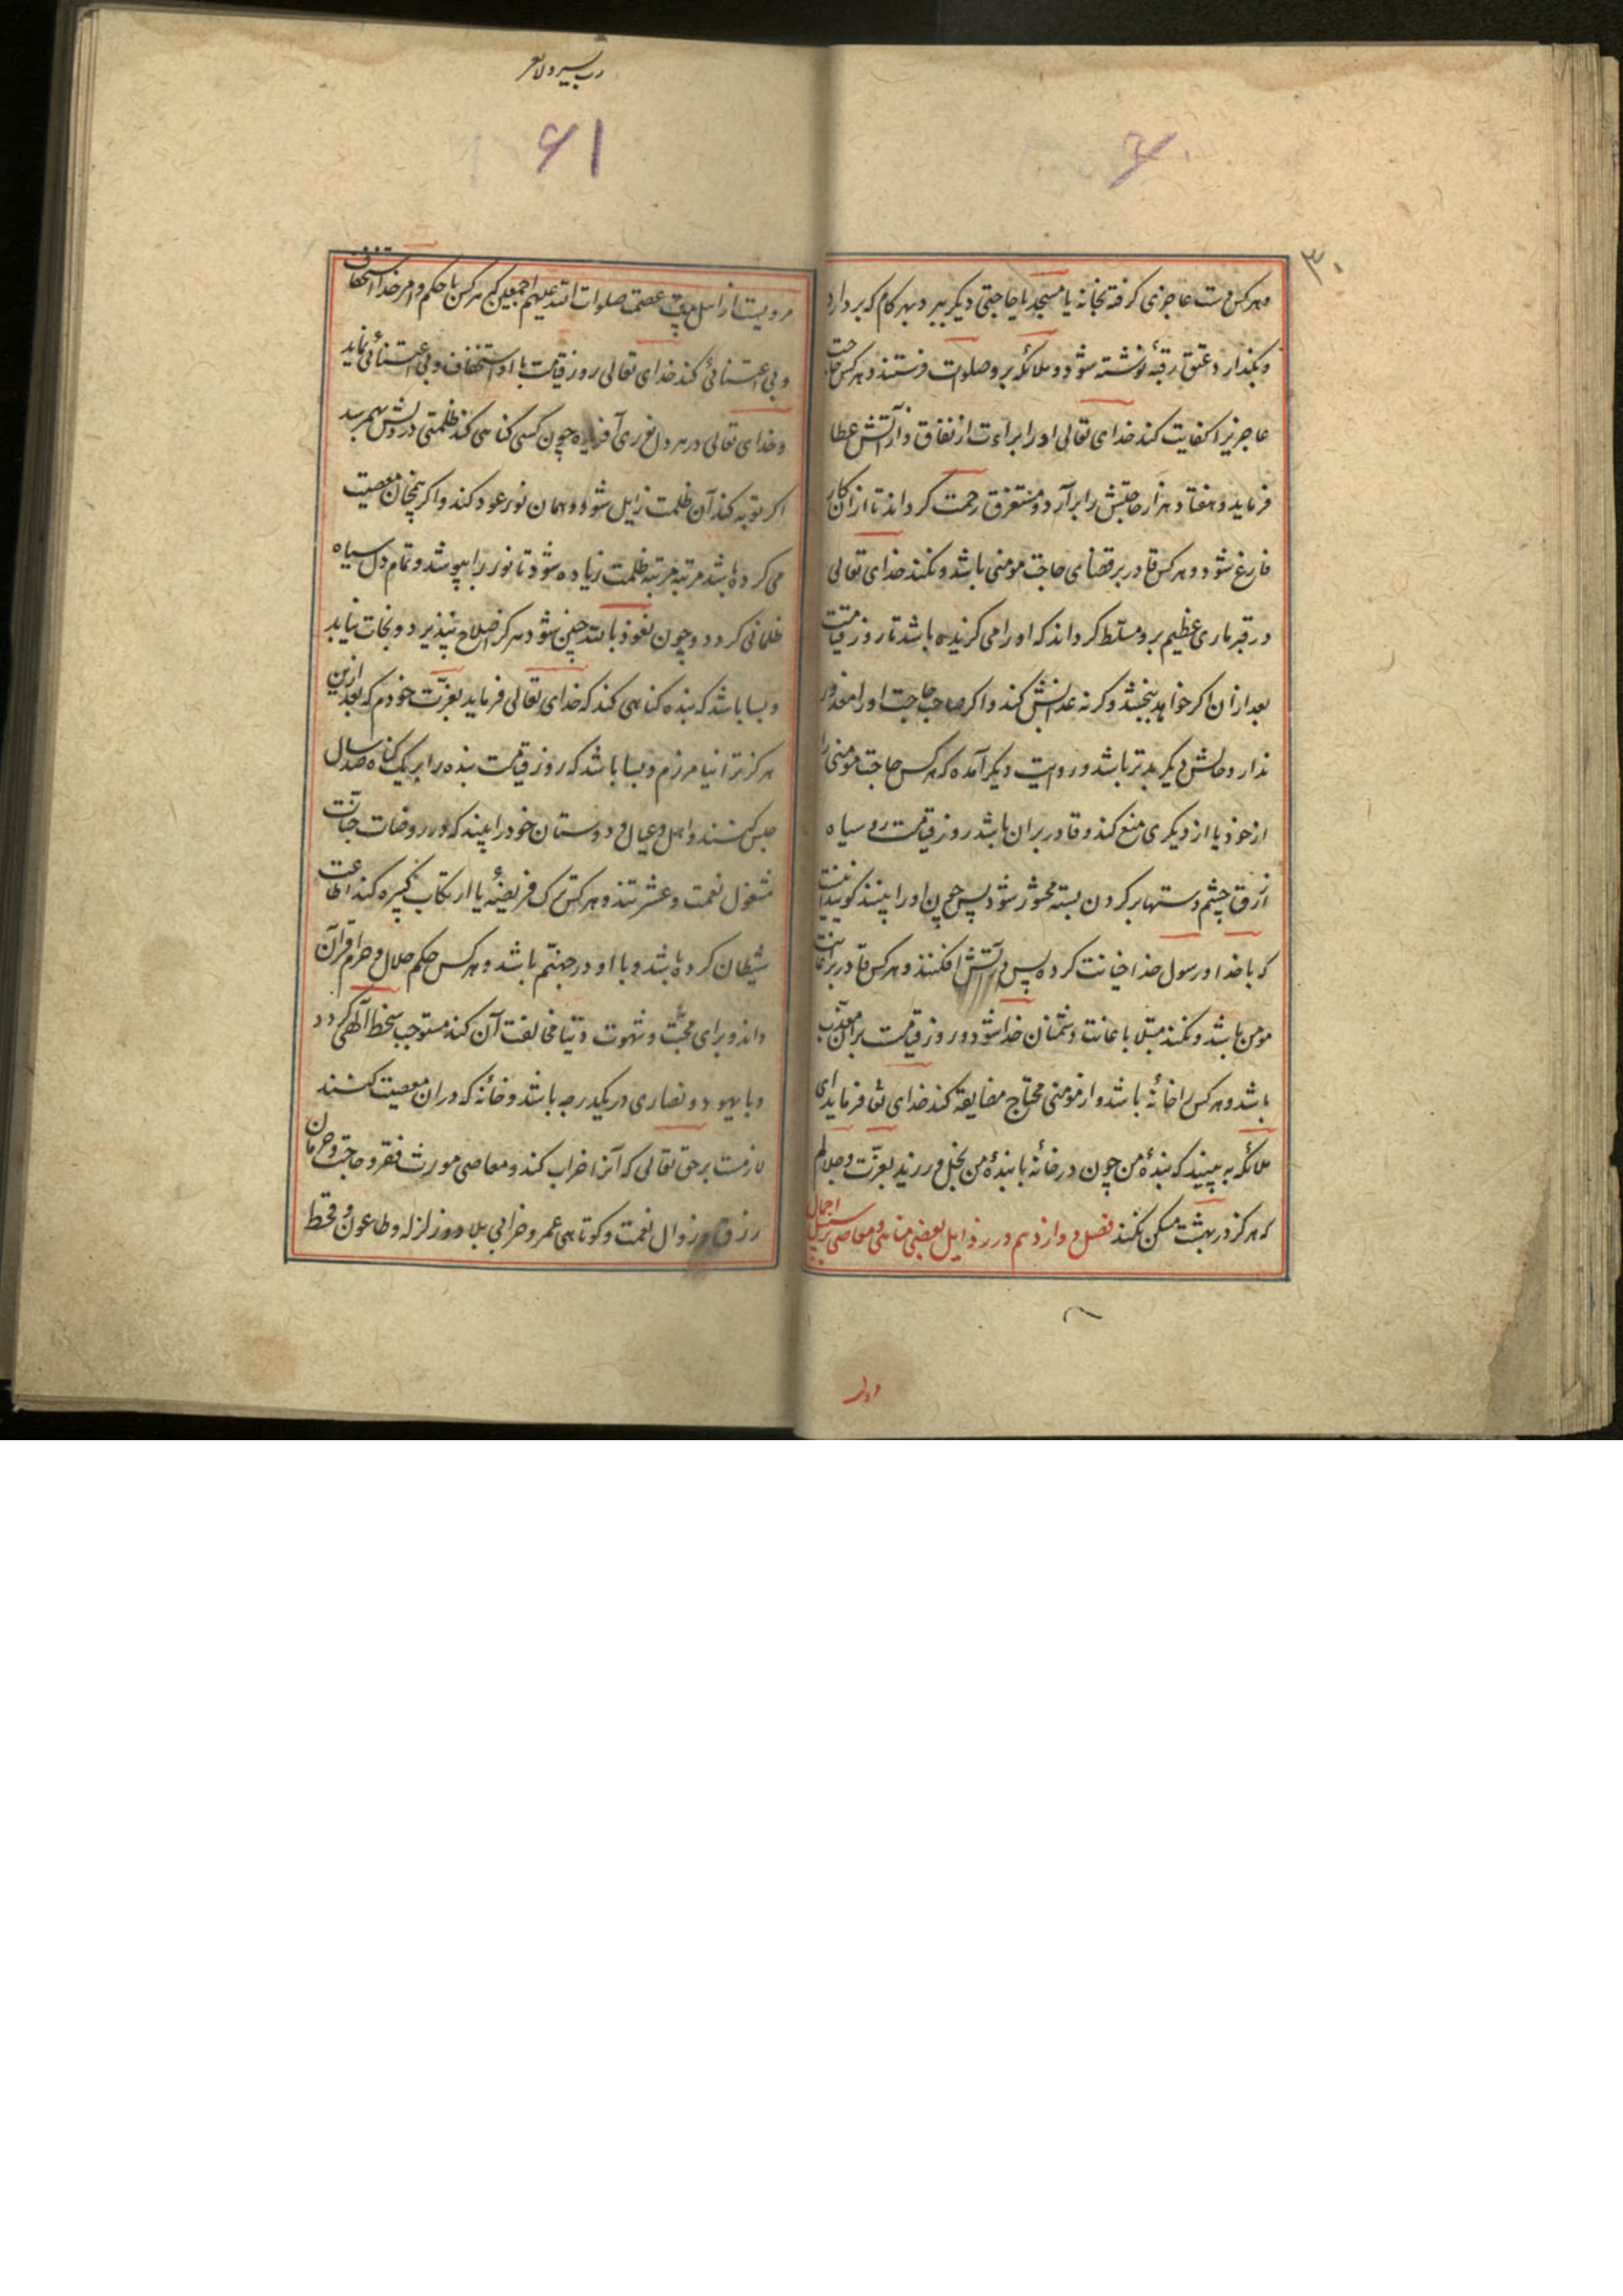 ۳۰
۶۰
و هر کس دست عاجزی گرفته بخانه یا مسجد یا حاجتی دیگر ببرد بهر کام که بردارد
و بگذارد عتق رقبهٔ نوشته شود و ملائکه برو صلوات فرستند و هر کس حاجت
عاجزیرا کفایت کند خدای تعالی او را براءت از نفاق و از آتش عطا
فرماید و هفتاد هزار حاجتش را برآرد و مستغرق رحمت گرداند تا از آن کار
فارغ شود و هر کس قادر بر قضای حاجت مومنی باشد و نکند خدای تعالی
در قبر ماری عظیم برو مسلّط گرداند که او را می گزیده باشد تا روز قیامت
بعد از آن اگر خواهد ببخشد و گرنه عذابش کند و اگر صاحب حاجت او را معذور
ندارد حالش دیگر بدتر باشد و روایت دیگر آمده که هر کس حاجت مومنی را
از خود یا از دیگری منع کند و قادر بران باشد روز قیامت روی سیاه
ازرق چشم دستها بر گردن بسته محشور شود پس چون او را بینند گویند اینست
که با خدا و رسول خدا خیانت کرده پس در آتش افکنند و هر کس قادر بر اعانت
مومن باشد و نکند مبتلا باعانت دشمنان خدا شود و روز قیامت بر آن معذّب
باشد و هر کس را خانهٔ باشد و از مومنی محتاج مضایقه کند خدای تعا فرماید ای
ملائکه به بینید که بندهٔ من چون در خانهٔ با بندهٔ من بخل ورزید بعزّت و جلالم
که هرگز در بهشت مسکن نکند فصل دوازدهم در رذایل بعضی مناهی و معاصی بر سبیل اجمال
رب یسر ولا تعسر
۶۱
مرویست از اهل بیت عصمت صلوات الله علیهم اجمعین که هر کس با حکم و امر خدا استخفاف
و بی اعتنائی کند خدای تعالی روز قیامت با او استخفاف و بی اعتنائی نماید
و خدای تعالی در هر دل نوری آفریده چون کسی گناهی کند ظلمتی در دلش بهم رسد
اگر توبه کند آن ظلمت زایل شود و همان نور عود کند و اگر همچنان معصیت
می کرده باشد مرتبه مرتبه ظلمت زیاده شود تا نور را بپوشد و تمام دل سیاه
ظلمانی گردد و چون نعوذ بالله چنین شود هرگز اصلاح نپذیرد و نجات نیابد
و بسا باشد که بنده گناهی کند که خدای تعالی فرماید بعزّت خودم که بعد ازین
هرگز ترا نیامرزم و بسا باشد که روز قیامت بنده را بر یک گناه صد سال
حبس کنند و اهل و عیال و دوستان خود را بیند که در روضات جنّات
مشغول نعمت و عشرتند و هر کس ترک فریضهٔ یا ارتکاب کبیره کند اطاعت
شیطان کرده باشد و با او در جهنّم باشد و هر کس حکم حلال و حرام قرآن
داند و برای محبّت و شهوت دنیا مخالفت آن کند مستوجب سخط الهی گردد
و با یهود و نصاری در یکدرجه باشد و خانهٔ که در ان معصیت کنند
لازمست بر حق تعالی که آنرا خراب کند و معاصی مورث فقر و حاجت و حرمان
رزق و زوال نعمت و کوتاهی عمر و خرابی بلاد و زلزله و طاعون و قحط